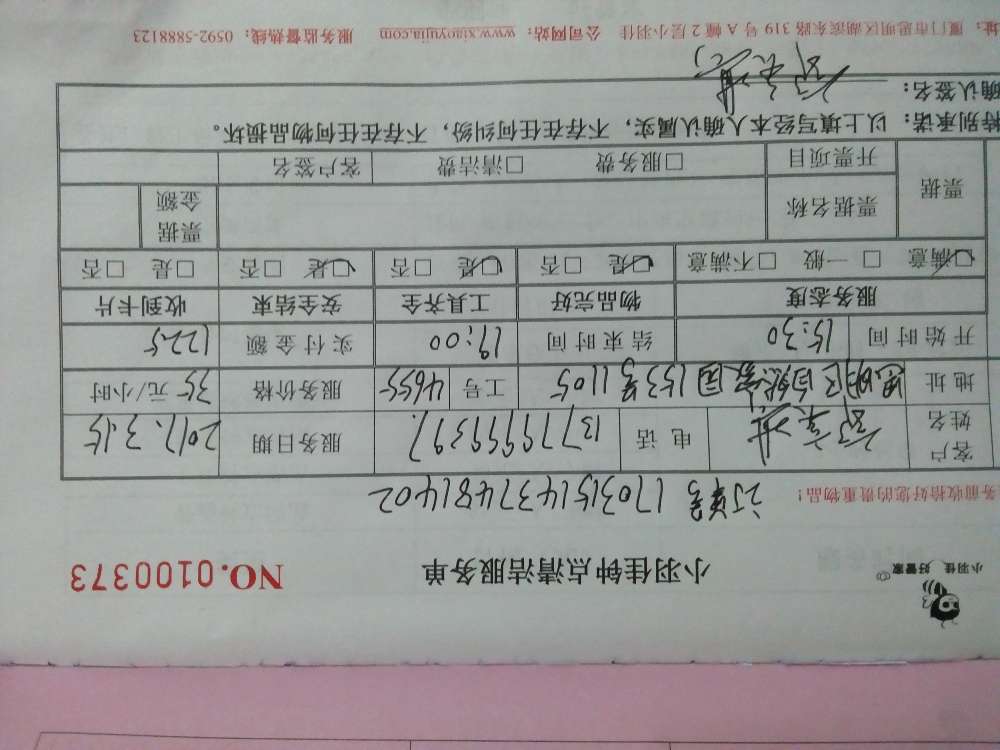 小羽佳 好管家
小羽佳钟点清洁服务单 NO.0100373
务前收拾好您的贵重物品! 订单号 1703151437481402
客户姓名 电话 13779999397. 服务日期 2017.3.15
地址 思明区自然家园153号1105 工号 4655 服务价格 35元/小时
开始时间 15:30 结束时间 19:00 实付金额 122.5
服务态度 物品完好 工具齐全 安全结束 收到卡片
☑满意 □一般 □不满意 ☑是 □否 ☑是 □否 ☑是 □否 □是 □否
票据 票据名称 票据金额
开票项目 □服务费 □清洁费 客户签名
特别承诺:以上填写经本人确认属实,不存在任何纠纷,不存在任何物品损坏。
确认签名:
址:厦门市思明区湖滨东路 319 号 A 幢 2 层小羽佳 公司网站:www.xiaoyujia.com 服务监督热线:0592-5888123